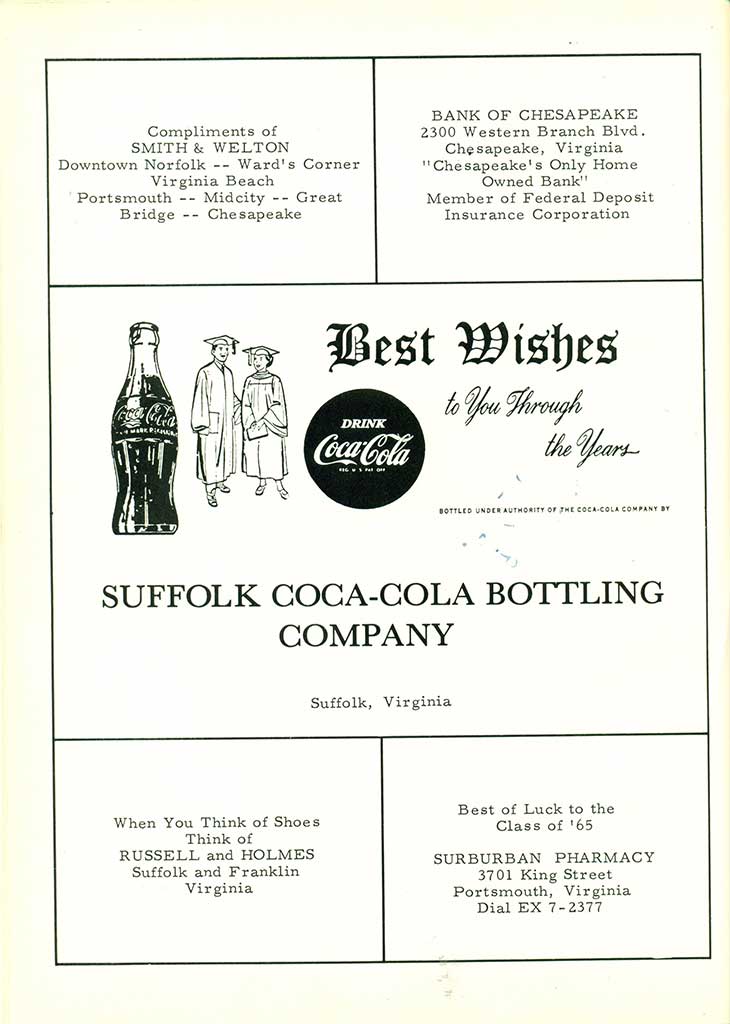 Compliments of
SMITH & WELTON
Downtown Norfolk -- Ward's Corner
Virginia Beach
Portsmouth -- Midcity -- Great
Bridge -- Chesapeake
BANK OF CHESAPEAKE
2300 Western Branch Blvd.
Chesapeake, Virginia
"Chesapeake's Only Home
Owned Bank"
Member of Federal Deposit
Insurance Corporation
Best Wishes
to You Through
the Years
Coca-Cola
TRADE MARK REGISTERED
DRINK
Coca-Cola
REG U S PAT OFF
BOTTLED UNDER AUTHORITY OF THE COCA-COLA COMPANY BY
SUFFOLK COCA-COLA BOTTLING
COMPANY
Suffolk, Virginia
When You Think of Shoes
Think of
RUSSELL and HOLMES
Suffolk and Franklin
Virginia
Best of Luck to the
Class of '65
SURBURBAN PHARMACY
3701 King Street
Portsmouth, Virginia
Dial EX 7-2377